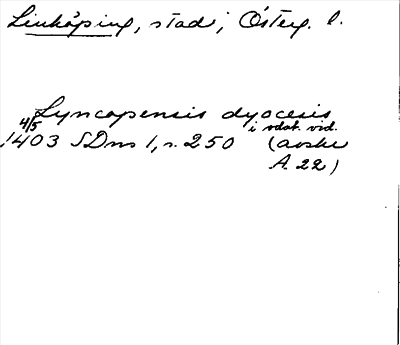 Linköping, stad i, Österg. l.
Lyncopensis dyocesis
4/5 i vdat. vid.
1403 SDns 1, s. 250 (avskr
A. 22)